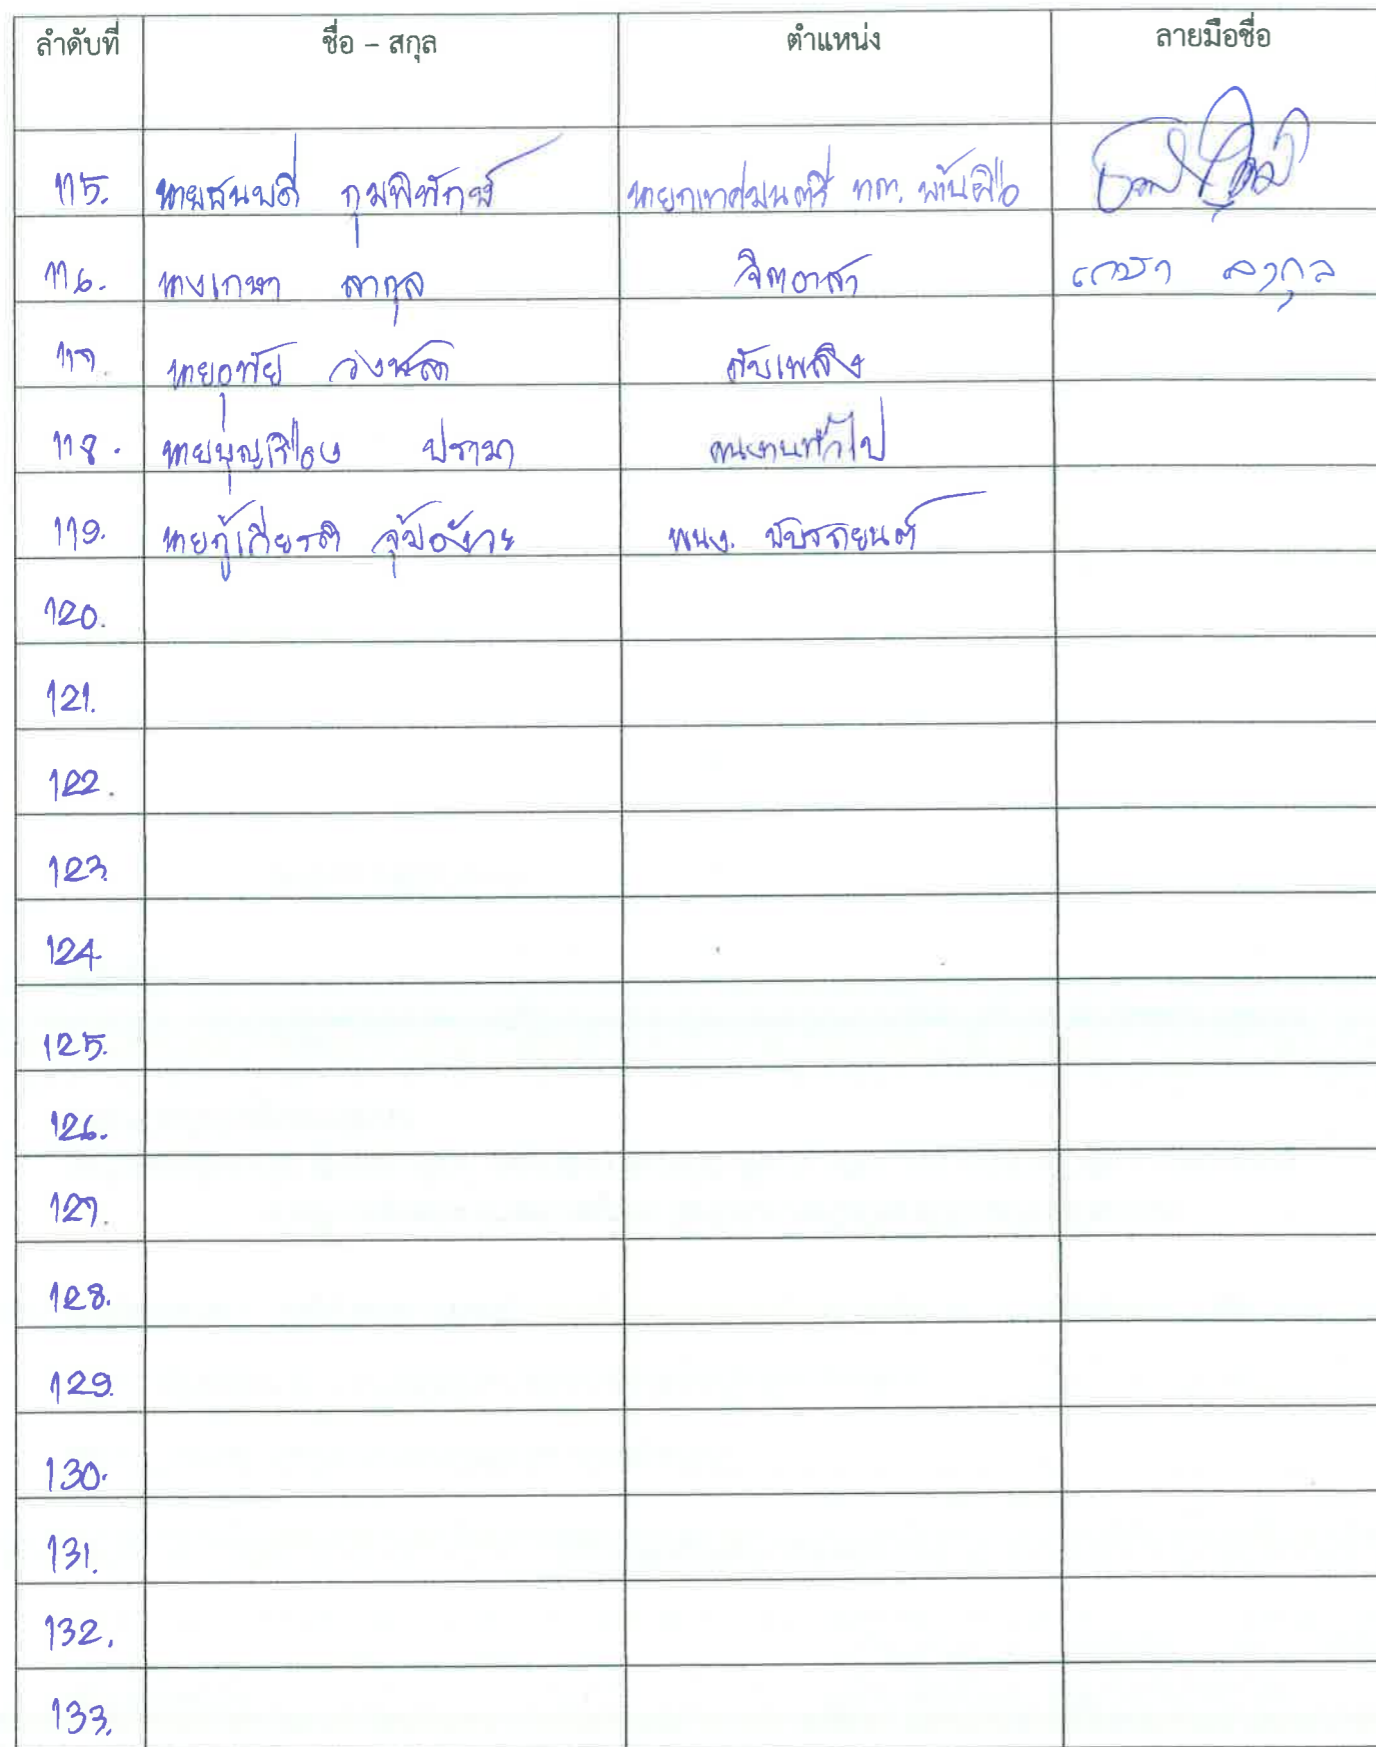 ลำดับที่ ชื่อ – สกุล ตำแหน่ง ลายมือชื่อ
115. นายธนบดี กุมพิทักษ์ นายกเทศมนตรี ทต. บ้านผือ
116. นางเกษา ลากุล จิตอาสา เกษา ลากุล
117. นายอุทัย ดับเพลิง
118. นายบุญเรือง ปรามา คนงานทั่วไป
119. นายกู้เกียรติ พนง. ขับรถยนต์
120.
121.
122.
123.
124.
125.
126.
127.
128.
129.
130.
131.
132.
133.